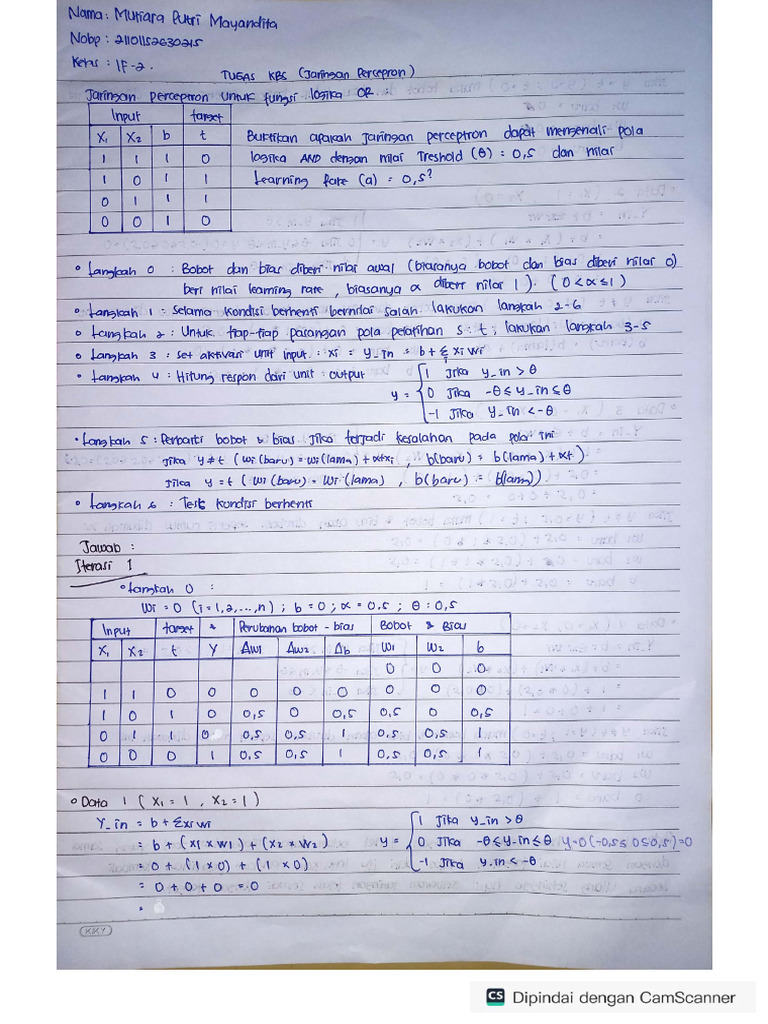 Nama : Mutiara Putri Mayandita
Nobp : 21101152630215
Kelas : IF-2.
TUGAS KBS (Jaringan Percepron)
Jaringan perceptron untuk fungsi logika OR :
Input target
X1 X2 b t
1 1 1 0
1 0 1 1
0 1 1 1
0 0 1 0
Buktikan apakah Jaringan perceptron dapat mengenali pola
logika AND dengan nilai Treshold (θ) = 0,5 dan nilai
Learning Rate (a) = 0,5?
• Langkah 0 : Bobot dan bias diberi nilai awal (biasanya bobot dan bias diberi nilai 0)
beri nilai learning rate , biasanya α diberi nilai 1 ). (0<α≤1)
• Langkah 1 : Selama kondisi berhenti bernilai salah lakukan langkah 2-6
• Langkah 2 : Untuk tiap-tiap pasangan pola pelatihan s : t ; lakukan langkah 3-5
• Langkah 3 : Set aktivasi unit input : xi = y_in = b + Σi xi wi
• Langkah 4 : Hitung respon dari unit output
y = { 1 Jika y_in > θ
0 Jika -θ ≤ y_in ≤ θ
-1 Jika y_in < -θ
• Langkah 5 : Perbaiki bobot & bias Jika terjadi kesalahan pada pola ini
Jika y≠t ( wi (baru) = wi (lama) + αtxi , b(baru) = b(lama) + αt )
Jika y = t ( wi (baru) = wi (lama) , b(baru) = b(lama))
• Langkah 6 : Test kondisi berhenti
Jawab :
Iterasi 1
• Langkah 0 :
Wi = 0 (i = 1,2,...,n) ; b = 0 ; α = 0.5 ; θ : 0,5
Input target & Perubahan bobot - bias Bobot & Bias
X1 X2 t Y Δw1 Δw2 Δb W1 W2 b
0 0 0
1 1 0 0 0 0 0 0 0 0
1 0 1 0 0,5 0 0,5 0,5 0 0,5
0 1 0 0,5 0,5 1 0,5 0,5 1
0 0 0 1 0,5 0,5 1 0,5 0,5 1
• Data 1 ( X1 = 1 , X2 = 1 )
Y_in = b + Σxi wi
= b + (x1 x w1) + (x2 x w2)
= 0 + (1 x 0) + (1 x 0)
= 0 + 0 + 0 = 0
=
y = { 1 Jika y_in > θ
0 Jika -θ ≤ y_in ≤ θ y=0 (-0,5 ≤ 0 ≤ 0,5) = 0
-1 Jika y_in < -θ
KIKY
CS Dipindai dengan CamScanner